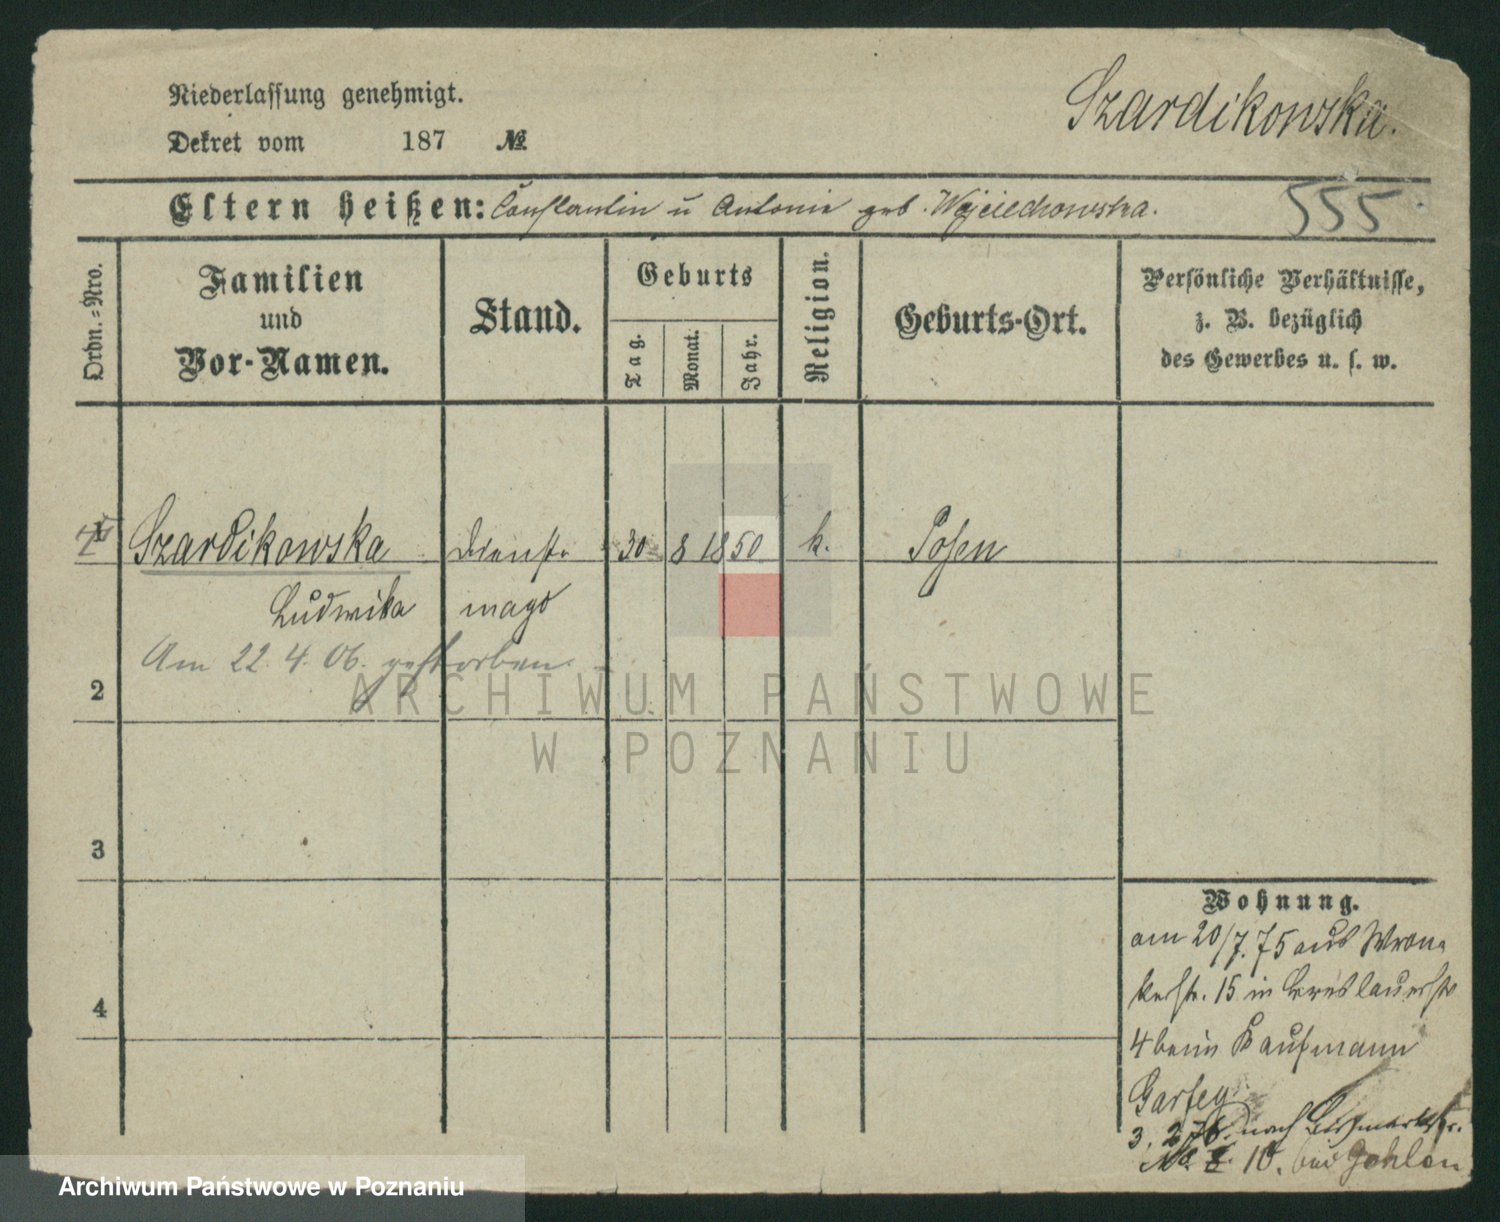 Niederlassung genehmigt.
Dekret vom 187 №
Szardikowska.
Eltern heißen: Constantin u Antonie geb. Wojciechowska.
555
Ordn.-Nro.
Familien
und
Vor-Namen.
Stand.
Geburts
Tag.
Monat.
Jahr.
Religion.
Geburts-Ort.
Persönliche Verhältnisse,
z. B. bezüglich
des Gewerbes u. s. w.
1 Szardikowska Dienst- 30 8 1850 k. Posen
Ludwika magd
Am 22. 4. 06. gestorben.
2
3
4
Wohnung.
am 20/7. 75 aus Wron-
kerstr. 15 in Breslauerstr
4 beim Kaufmann
3. 2 76. nach
10. bei
ARCHIWUM PAŃSTWOWE
W POZNANIU
Archiwum Państwowe w Poznaniu